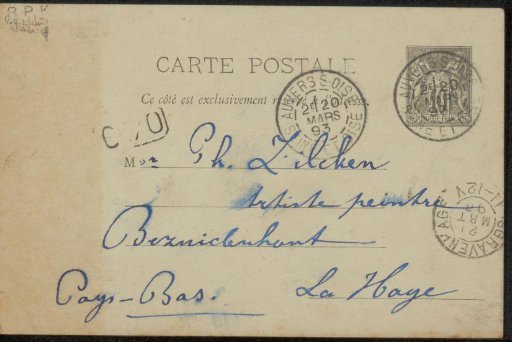 CARTE POSTALE
Ce côté est exclusivement
AUVERS-S-OISE
2E 20
MARS
93
AUVERS-S-OISE
20
Mon Ph. Zilcken
Artiste peintre
Bezuidenhout
Pays-Bas. La Haye
'S GRAVENHAGE
21
MRT
11-12V